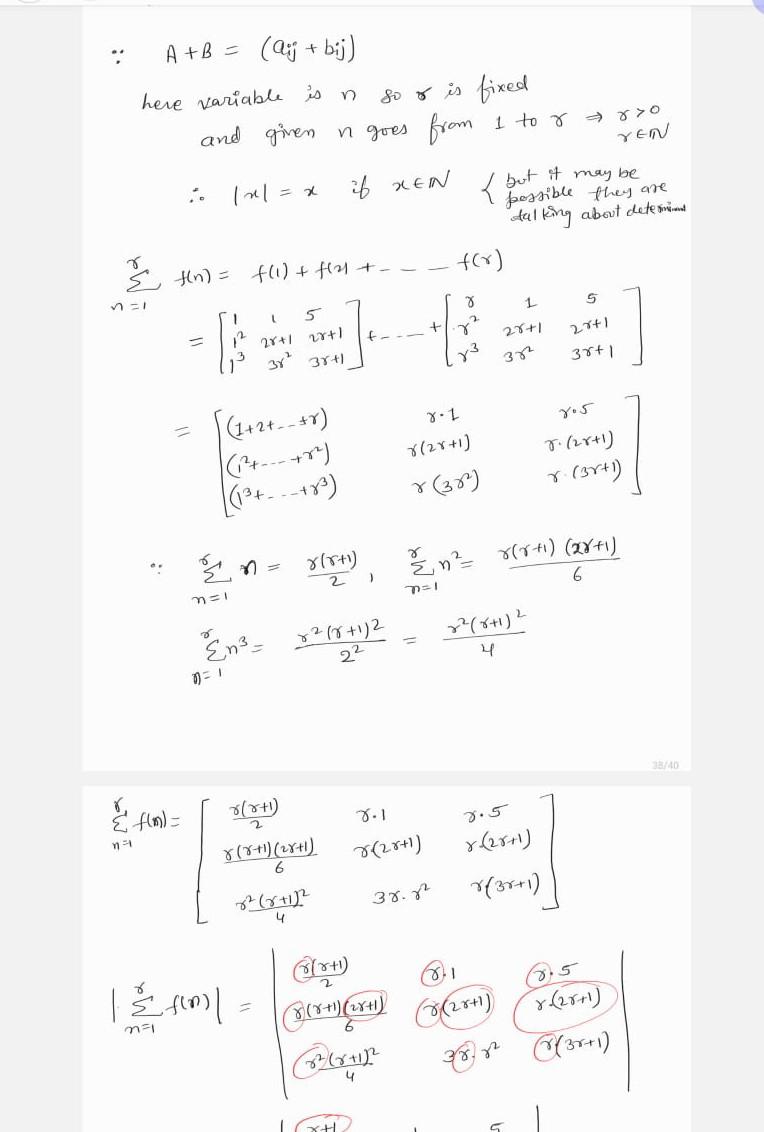 ∵ A + B = (aij + bij)
here variable is n so r is fixed
and given n goes from 1 to r ⇒ r > 0
r ∈ ℕ
∴ |x| = x if x ∈ ℕ { but it may be
possible they are
talking about determinant
r
Σ f(n) = f(1) + f(2) + - - - f(r)
n=1
= [ 1 1 5 ] + - - - + [ r 1 5 ]
[ 1² 2r+1 2r+1 ] [ r² 2r+1 2r+1 ]
[ 1³ 3r² 3r+1 ] [ r³ 3r² 3r+1 ]
= [ (1+2+--+r) r·1 r·5 ]
[ (1²+---+r²) r(2r+1) r·(2r+1) ]
[ (1³+-..-+r³) r(3r²) r·(3r+1) ]
∵ r Σ n=1 n = r(r+1)/2 , r Σ n=1 n² = r(r+1)(2r+1)/6
r Σ n=1 n³ = r²(r+1)2/2² = r²(r+1)²/4
38/40
r Σ n=1 f(n) = [ r(r+1)/2 r·1 r·5 ]
[ r(r+1)(2r+1)/6 r(2r+1) r·(2r+1) ]
[ r²(r+1)²/4 3r·r² r(3r+1) ]
| r Σ n=1 f(n) | = | r(r+1)/2 r·1 r·5 |
| r(r+1)(2r+1)/6 r(2r+1) r·(2r+1) |
| r²(r+1)²/4 3r·r² r(3r+1) |
| r+1 1 5 |